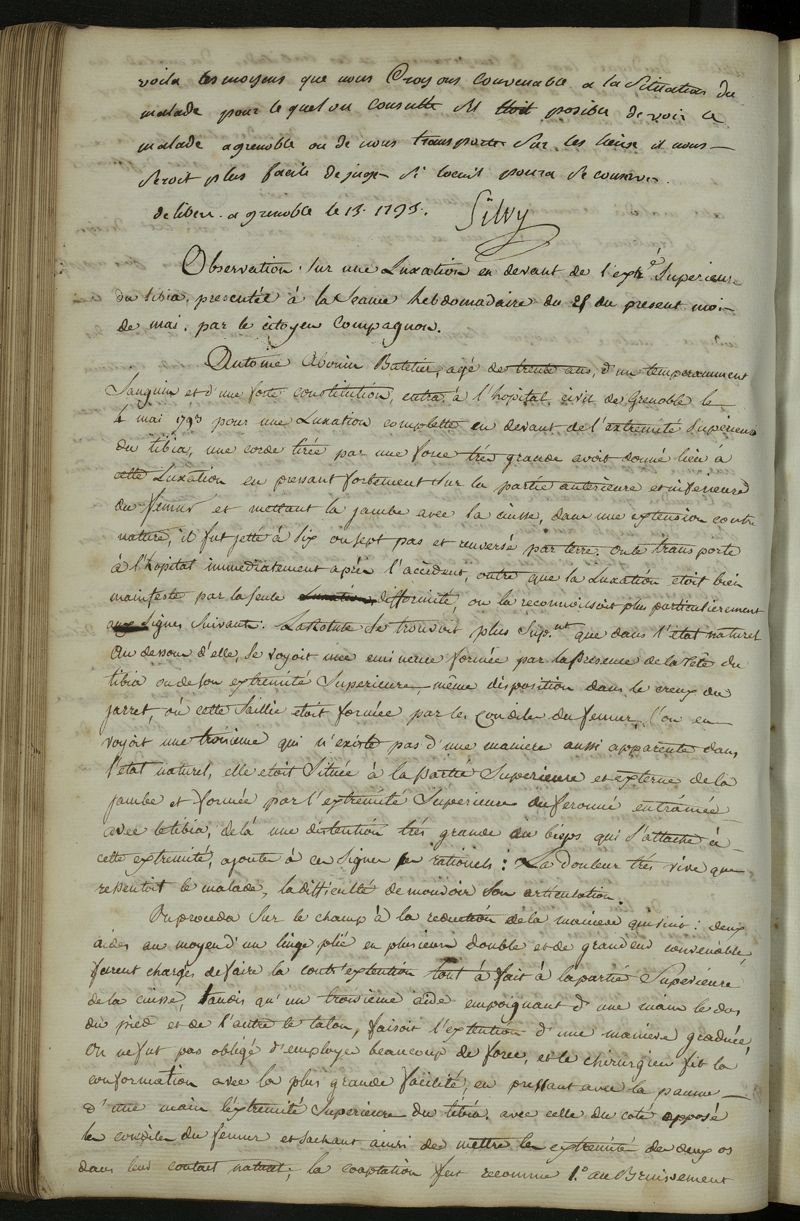 voila les moyens que nous Croyons convenable a la Situation du
malade pour le quel on consulte s'il etoit posible de voir ce
malade a grenoble ou de nous transporter Sur les lieux il nous
Seroit plus facile de juger Si l'oeuil poura Se conserver.
deliberé a grenoble le 13. 1793. Silvy
Observation Sur une Luxation en devant de l'extré Superieure
du tibia, presentée à la Seance hebdomadaire du 25 du present moi
de mai, par le citoyen Compagnon.
Antoine Abonin Batelier, agé de trente ans, d'un temperamment
Sanguin et d'une forte constitution, entra à l'hopital civil de Grenoble le
4 mai 1793 pour une Luxation complette en devant de l'extremité Superieure
du tibia, une corde tirée par une force très grande avoit donné lieu à
cette Luxation en pressant fortement sur la partie anterieure et inferieure
du femur et mettant la jambe avec la cuisse, dans une extension contre
nature, il fut jetté à six ou sept pas et renversé par terre. on le transporte
à l'hopital immediatement après l'accident, outre que la Luxation etoit bien
manifeste par la seule difformité, on la reconnoissoit plus particulierement
aux Signes Suivants: La Rotule Se trouvoit plus Sup.nt que dans l'etat naturel
Au dessous d'elle, Se voyoit une eminence formée par la presence de la tête du
tibia ou de son extremité Superieure, même disposition dans le creux du
jarret, où cette Saillie etoit formée par les condiles du femur, l'on en
voyoit une troisieme qui n'existe pas d'une maniere aussi apparente dans
l'etat naturel, elle etoit Située à la partie Superieure et externe de la
jambe et formée par l'extremité Superieure du peronné entrainée
avec le tibia, de là une distention très grande du biceps qui S'attache à
cette extremité, ajouté à ces Signes rationels: La douleur très vive que
ressentoit le malade, la difficulté de mouvoir son articulation.
On proceda Sur le champ à la reduction de la maniere qui suit: deux
aides au moyen d'un linge plié en plusieurs double et de grandeur convenable
furent chargés de faire la contr'extention tout à fait à la partie Superieure
de la cuisse, tandis qu'un troisieme aide empoignant d'une main le dos
du pied et de l'autre le talon, faisoit l'extention d'une maniere graduée,
On ne fut pas obligé d'employer beaucoup de force, et le chirurgien fit la
conformation avec la plus grande facilité, en pressant avec la paume
d'une main l'extremité Superieure du tibia, avec celle du coté opposé
les condiles du femur et sachant ainsi de mettre les extremité de deux os
dans leur contact naturel, la coaptation fut reconnue 1.º au Bruissement